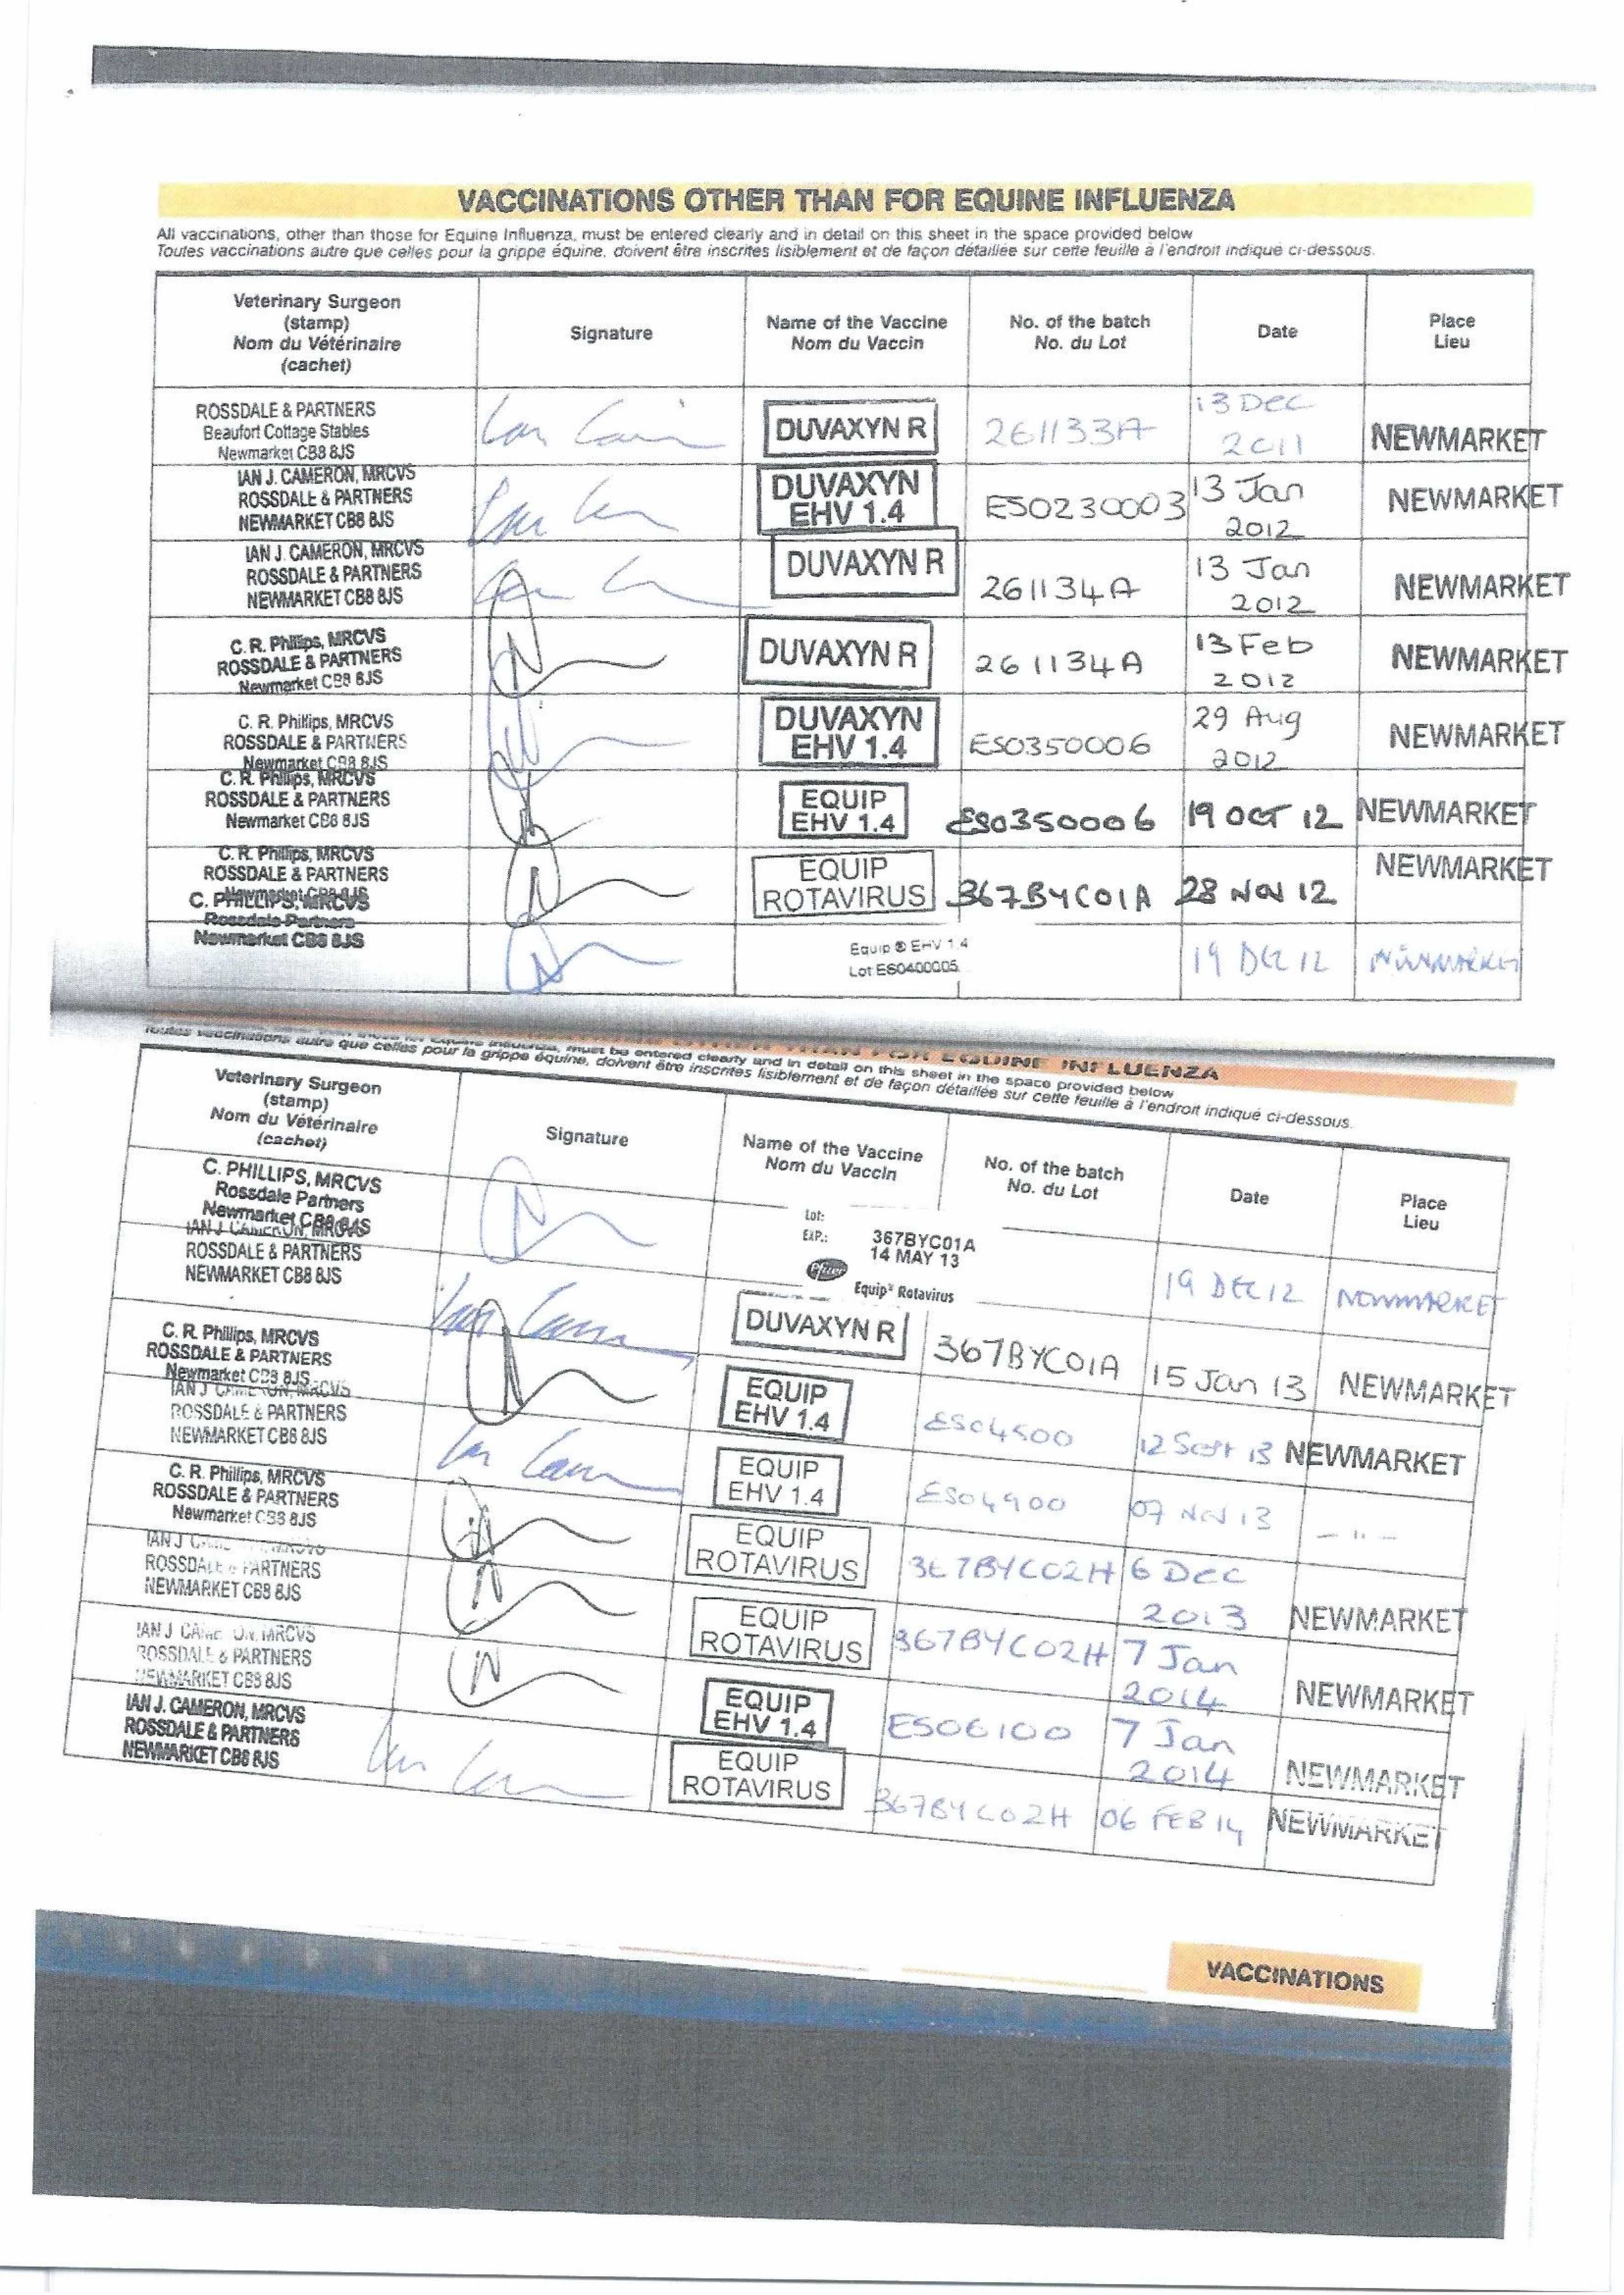 VACCINATIONS OTHER THAN FOR EQUINE INFLUENZA
All vaccinations, other than those for Equine Influenza, must be entered clearly and in detail on this sheet in the space provided below
Toutes vaccinations autre que celles pour la grippe équine, doivent être inscrites lisiblement et de façon détaillée sur cette feuille à l'endroit indiqué ci-dessous.
Veterinary Surgeon
(stamp)
Nom du Vétérinaire
(cachet)
Signature
Name of the Vaccine
Nom du Vaccin
No. of the batch
No. du Lot
Date
Place
Lieu
ROSSDALE & PARTNERS
Beaufort Cottage Stables
Newmarket CB8 8JS
DUVAXYN R
261133A
13 Dec
2011
NEWMARKET
IAN J. CAMERON, MRCVS
ROSSDALE & PARTNERS
NEWMARKET CB8 8JS
DUVAXYN
EHV 1.4
ES0230003
13 Jan
2012
NEWMARKET
IAN J. CAMERON, MRCVS
ROSSDALE & PARTNERS
NEWMARKET CB8 8JS
DUVAXYN R
261134A
13 Jan
2012
NEWMARKET
C. R. Phillips, MRCVS
ROSSDALE & PARTNERS
Newmarket CB8 8JS
DUVAXYN R
261134A
13 Feb
2012
NEWMARKET
C. R. Phillips, MRCVS
ROSSDALE & PARTNERS
Newmarket CB8 8JS
DUVAXYN
EHV 1.4
ES0350006
29 Aug
2012
NEWMARKET
C. R. Phillips, MRCVS
ROSSDALE & PARTNERS
Newmarket CB8 8JS
EQUIP
EHV 1.4
ES0350006
19 OCT 12
NEWMARKET
C. R. Phillips, MRCVS
ROSSDALE & PARTNERS
Newmarket CB8 8JS
EQUIP
ROTAVIRUS
367BYC01A
28 NOV 12
NEWMARKET
C. PHILLIPS, MRCVS
Rossdale Partners
Newmarket CB8 8JS
Equip ® EHV 1.4
Lot ES0400005
19 DEC 12
NEWMARKET
EQUINE INFLUENZA
must be entered clearly and in detail on this sheet in the space provided below
Toutes vaccinations autre que celles pour la grippe équine, doivent être inscrites lisiblement et de façon détaillée sur cette feuille à l'endroit indiqué ci-dessous.
Veterinary Surgeon
(stamp)
Nom du Vétérinaire
(cachet)
Signature
Name of the Vaccine
Nom du Vaccin
No. of the batch
No. du Lot
Date
Place
Lieu
C. PHILLIPS, MRCVS
Rossdale Partners
Newmarket CB8 8JS
Lot: 367BYC01A
EXP.: 14 MAY 13
Pfizer
Equip® Rotavirus
19 DEC 12
NEWMARKET
IAN J. CAMERON, MRCVS
ROSSDALE & PARTNERS
NEWMARKET CB8 8JS
DUVAXYN R
367BYC01A
15 Jan 13
NEWMARKET
C. R. Phillips, MRCVS
ROSSDALE & PARTNERS
Newmarket CB8 8JS
EQUIP
EHV 1.4
ES04500
12 Sept 13
NEWMARKET
IAN J CAMERON, MRCVS
ROSSDALE & PARTNERS
NEWMARKET CB8 8JS
EQUIP
EHV 1.4
ES04900
07 NOV 13
— " —
C. R. Phillips, MRCVS
ROSSDALE & PARTNERS
Newmarket CB8 8JS
EQUIP
ROTAVIRUS
367BYC02H
6 Dec
2013
NEWMARKET
IAN J CAMERON, MRCVS
ROSSDALE & PARTNERS
NEWMARKET CB8 8JS
EQUIP
ROTAVIRUS
367BYC02H
7 Jan
2014
NEWMARKET
IAN J CAMERON, MRCVS
ROSSDALE & PARTNERS
NEWMARKET CB8 8JS
EQUIP
EHV 1.4
ES06100
7 Jan
2014
NEWMARKET
IAN J. CAMERON, MRCVS
ROSSDALE & PARTNERS
NEWMARKET CB8 8JS
EQUIP
ROTAVIRUS
367BYC02H
06 FEB 14
NEWMARKET
VACCINATIONS